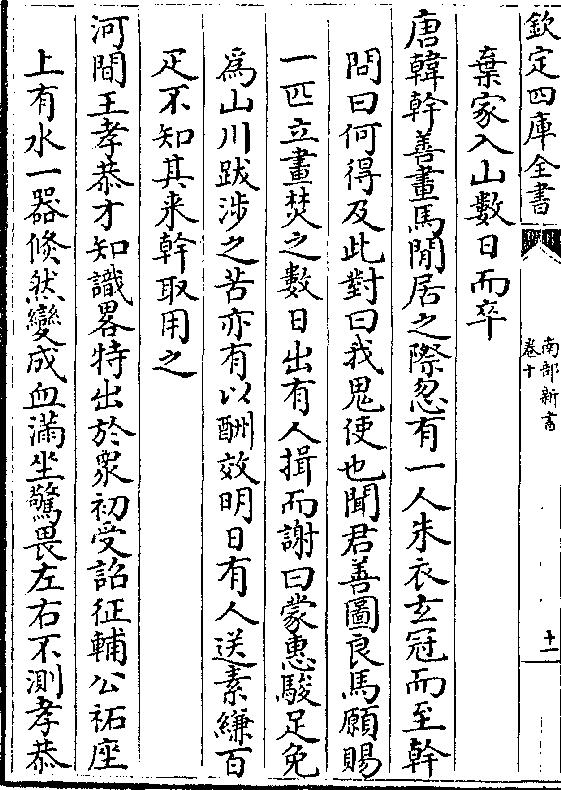 欽定四庫全書
南部新書
卷十
十一
棄家入山數日而卒
唐韓幹善畫馬閒居之際忽有一人朱衣玄冠而至幹
問曰何得及此對曰我鬼使也聞君善圖良馬願賜
一匹立畫焚之數日出有人揖而謝曰蒙惠駿足免
為山川跋涉之苦亦有以酬效明日有人送素縑百
疋不知其来幹取用之
河間王孝恭才知識畧特出於衆初受詔征輔公祏座
上有水一器倐然變成血滿坐驚畏左右不測孝恭